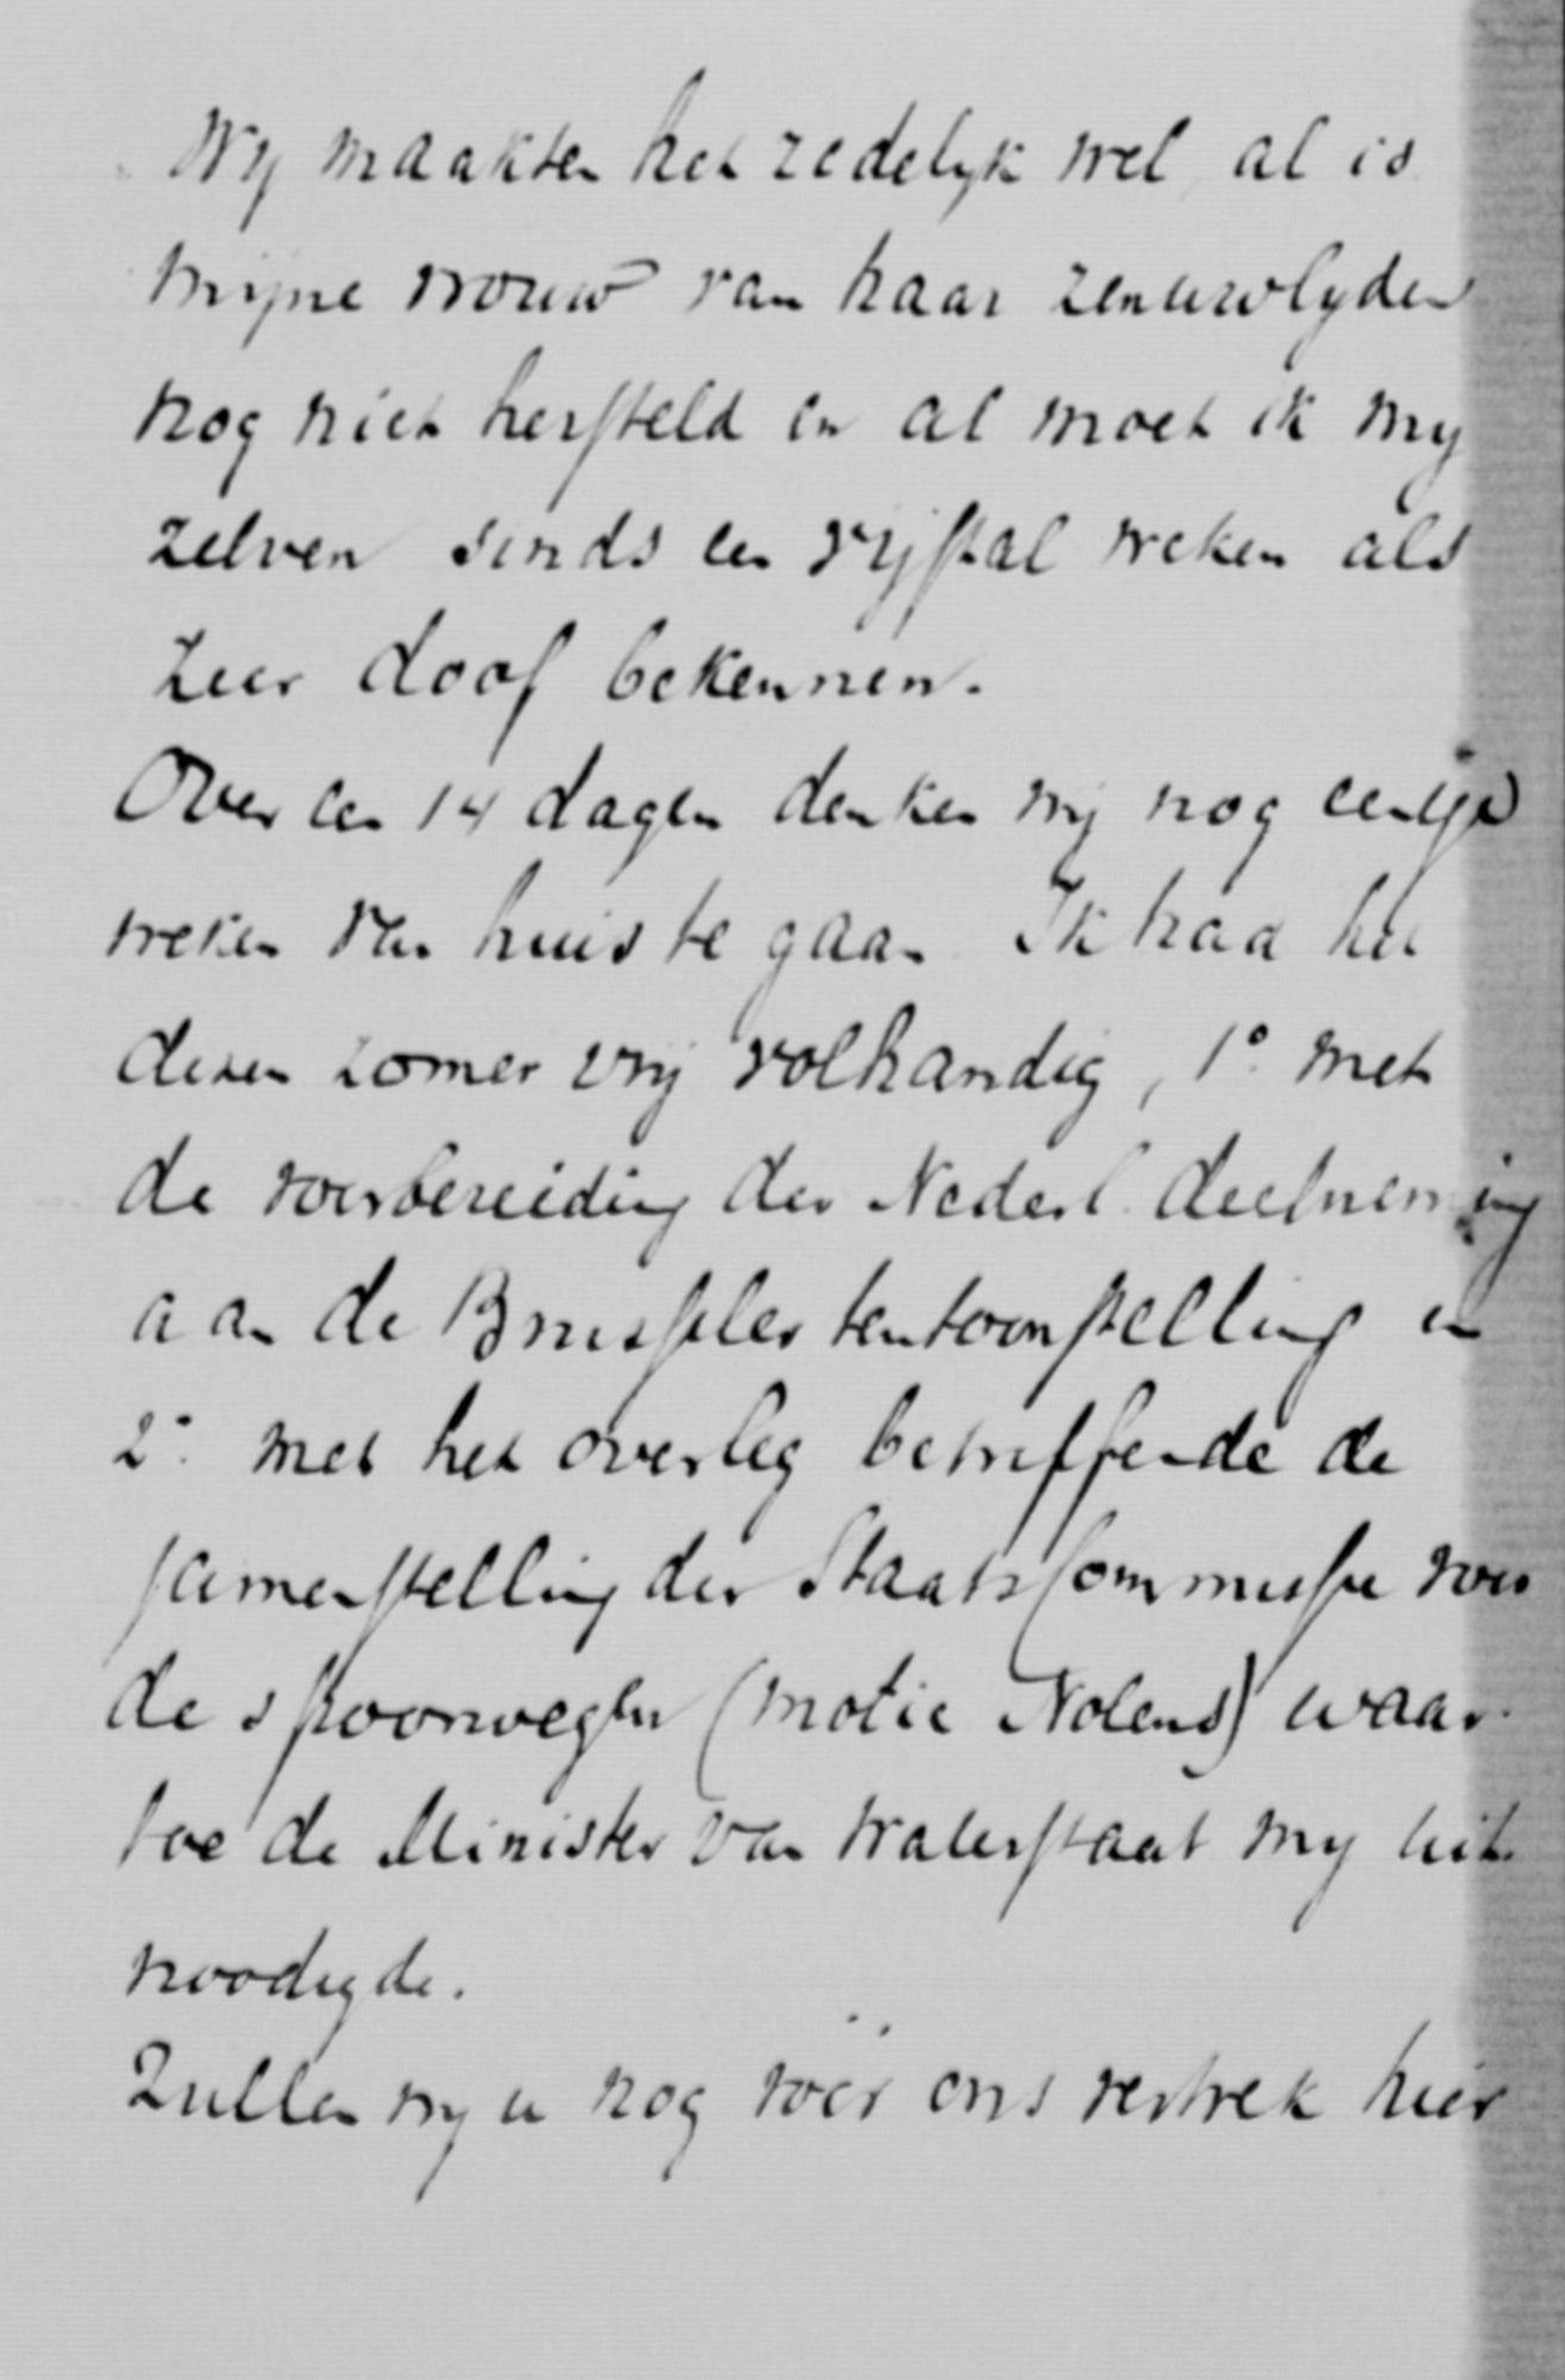 Wy maakten het redelyk wel, al is
mijne vrouw van haar zenuwlyden
nog niet hersteld en al moet ik my
zelven sinds een vijftal weken als
zeer doof bekennen.
Over een 14 dagen denken wij nog eenige
weken van huis te gaan. Ik had het
dezen zomer vrij volhandig, 1° met
de voorbereiding der Nederl. deelneming
aan de Brusseler tentoonstelling en
2° met het overleg betreffende de
samenstelling der Staatscommissie voor
de spoorwegen (motie Nolens) waar-
toe de Minister van Waterstaat my uit-
noodigde.
Zullen wy u nog vóór ons vertrek hier